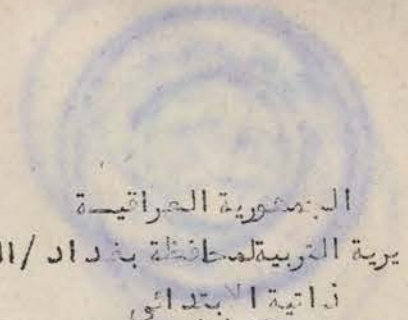 الجمهورية العراقيــة
يرية التربيةلمحافظة بغداد /ال
ذاتية الابتدائي